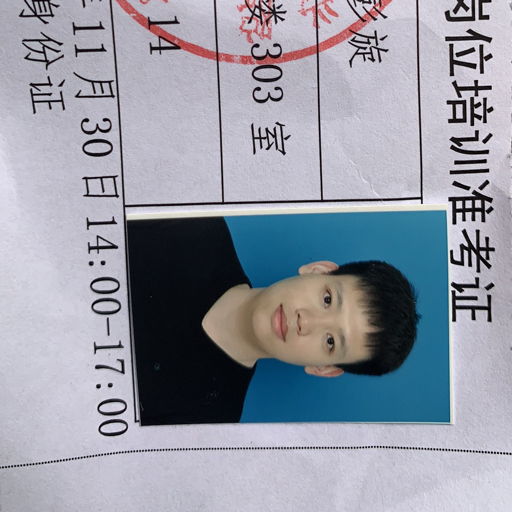 岗位培训准考证
彭旋
楼 303 室
14
年 11 月 30 日 14:00-17:00
身份证